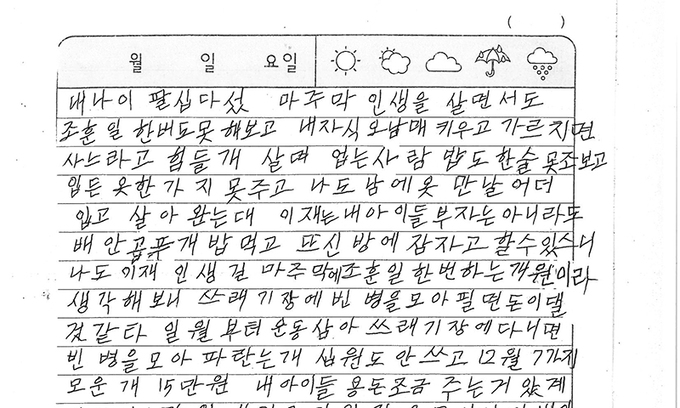 ( )
월 일 요일
내나이 팔십다섰 마주막 인생을 살면서도
조훈일 한버도못 해보고 내자식 오남매 키우고 가르치면
사느라고 힘들개 살며 업는사람 밥도한술 못조보고
입든 옷한가지 못주고 나도 남에옷 만날 어더
입고 살아 왔는대 이재는 내아이들 부자는 아니라도
배안곱푸개 밥먹고 뜨신 방에 잠자고 할수있스니
나도 이재 인생길 마주막에조훈일 한번하는개 원이라
생각해보니 쓰래기장에 빈 병을모아 필면돈이댈
것같타 일월 부터 운동삼아 쓰래기장에다니면
빈 병을모아 파란는개 십원도 안쓰고 12월 7가지
모운개 15만원 내아이들 용돈조금 주는거 있게